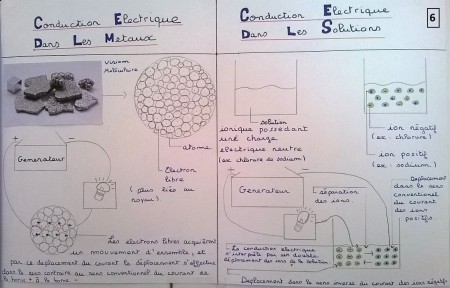 Conduction Electrique
Dans Les Metaux
vision
Moléculaire
atome
Electron
libre
(plus liés au
noyau)
+
-
Generateur
Les électrons libres acquièrent
un mouvement d'ensemble, et
par ce déplacement du courant le déplacement s'effectue
dans le sens contraire au sens conventionnel du courant de
la borne - à la borne +
Conduction Electrique
Dans Les Solutions
6
solution
ionique possédant
une charge
electrique neutre
(ex chlorure de sodium)
ion négatif
(ex: chlorure)
ion positif
(ex: sodium)
+
-
Generateur
séparation
des ions
Deplacement
dans le sens
conventionnel
du courant
des ions
positifs
La conduction electrique
s'interprète par un double
déplacement des ions de la solution
Deplacement dans le sens inverse du courant des ions négatifs